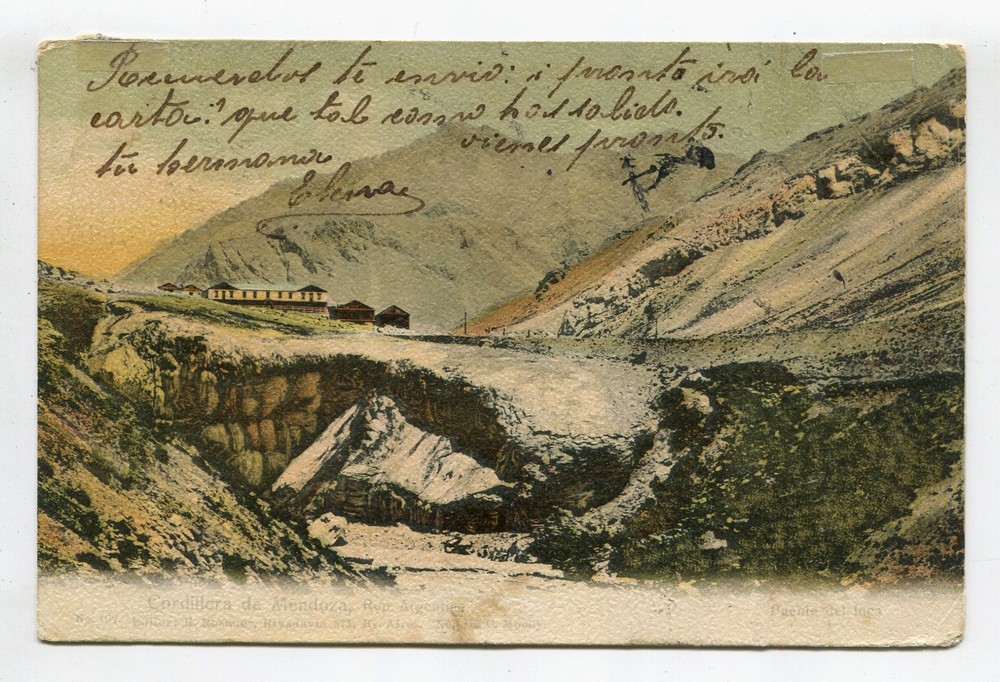 Recuerdos te envio: i pronto irá la
carta: que tal como has salido.
tu hermana vienes pronto.
Elena
Cordillera de Mendoza, Rep. Argentina
Puente del Inca
No. 197. Editor: R. Rosauer, Rivadavia 571, Bs. Aires.